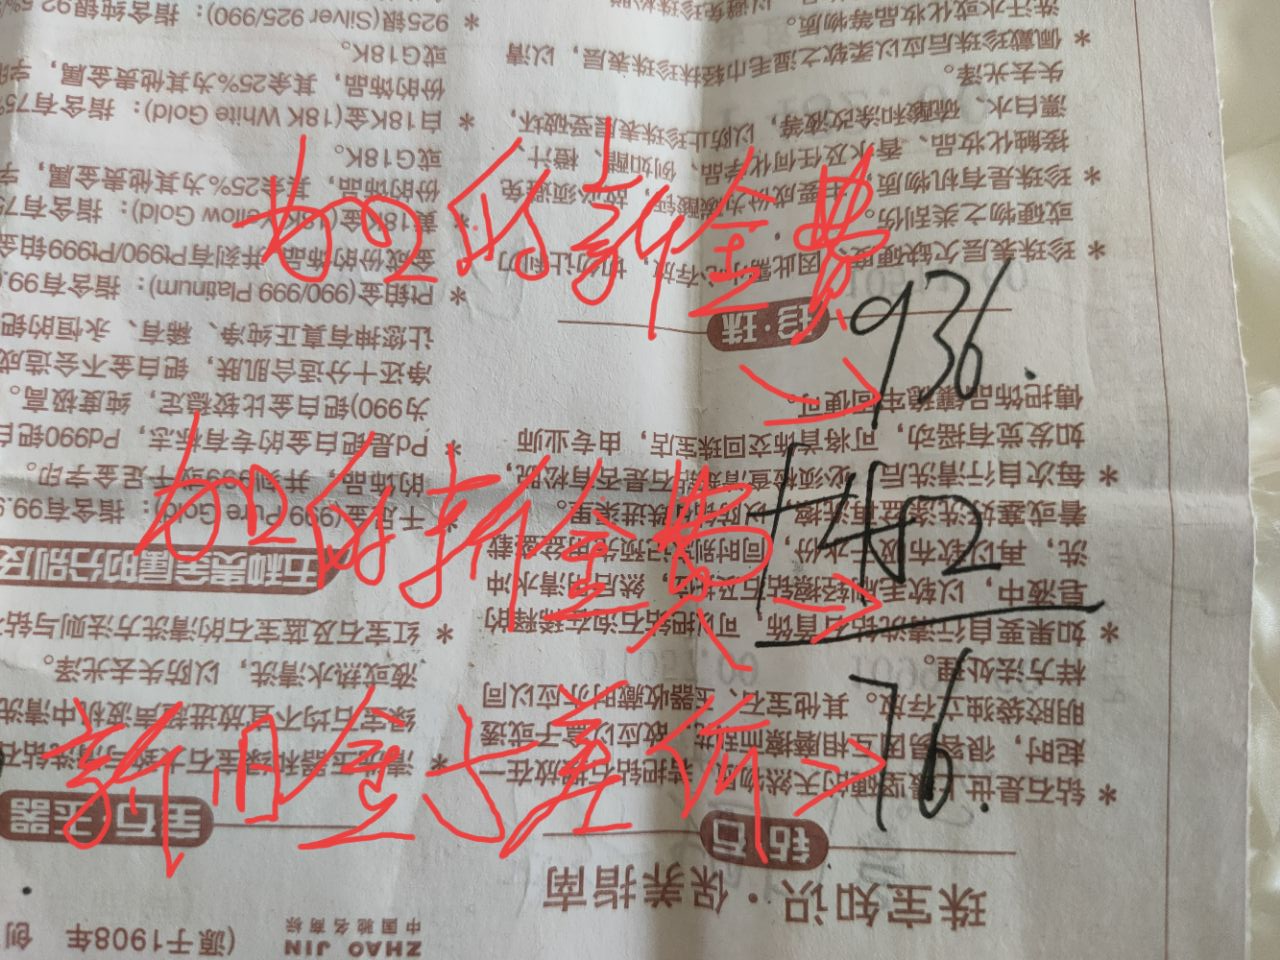 加工的新金费
936.
加工的新金费
+ 402
新旧金与差价
76.
珠宝知识·保养指南
钻石
* 钻石是世上最坚硬的天然物质,若把钻石放在一
起时,很容易因互相磨擦而 故应以盒子或透
明胶袋独立存放。其他宝石、玉器收藏时亦应以同
样方法处理。
* 如果要自行清洗钻石首饰,可以把钻石泡在稀释的
皂液中,以软毛刷轻擦钻石及 然后用清水冲
洗,再以软布吸干水份,同时别忘记预先用盆盛载
着或塞好洗涤盆再洗擦,以防钻石跌进渠里。
* 每次自行清洗后,必须检查清楚钻石是否有松脱,
如发觉有摇动,可将首饰交回珠宝店,由专业师
傅把饰品镶稳牢固便可。
珍·珠
* 珍珠表层欠缺硬度,因此需小心存放,切勿让利刀
或硬物之类刮伤。
* 珍珠是有机物质,主要成份为碳酸钙,故必须避免
接触化妆品、香水及任何化学品,例如醋、橙汁、
漂白水、硫酸和涂改液等,以防止珍珠表层受破坏,
失去光泽。
* 佩戴珍珠后应以柔软之湿毛巾轻抹珍珠表层,以清
洗汗水或化妆品等物质。
ZHAO JIN
中国驰名商标
(源于1908年 创
宝石 玉器
* 清洗玉器和绿宝石
绿宝石均不宜放进超声波机中清洗
液或热水清洗,以防失去光泽。
* 红宝石及蓝宝石的清洗方法则与钻
五种贵金属的分别及
* 千足金(999 Pure Gold): 指含有99.9
的饰品,并刻999或千足金字印。
* Pd是钯白金的专有标志,Pd990钯白
为990)钯白金比较稳定,纯度极高。
净还十分适合肌肤,钯白金不会造成
让您拥有真正纯净、稀有、永恒的钯
* Pt铂金(990/999 Platinum): 指含有99.0
金成份的饰品,并刻有Pt990/Pt999铂金
* 黄18K金(18K Yellow Gold): 指含有75
份的饰品,其余25%为其他贵金属,字
或G18K。
* 白18K金(18K White Gold): 指含有75%
份的饰品,其余25%为其他贵金属,字
或G18K。
* 925银(Silver 925/990): 指含纯银92.5%